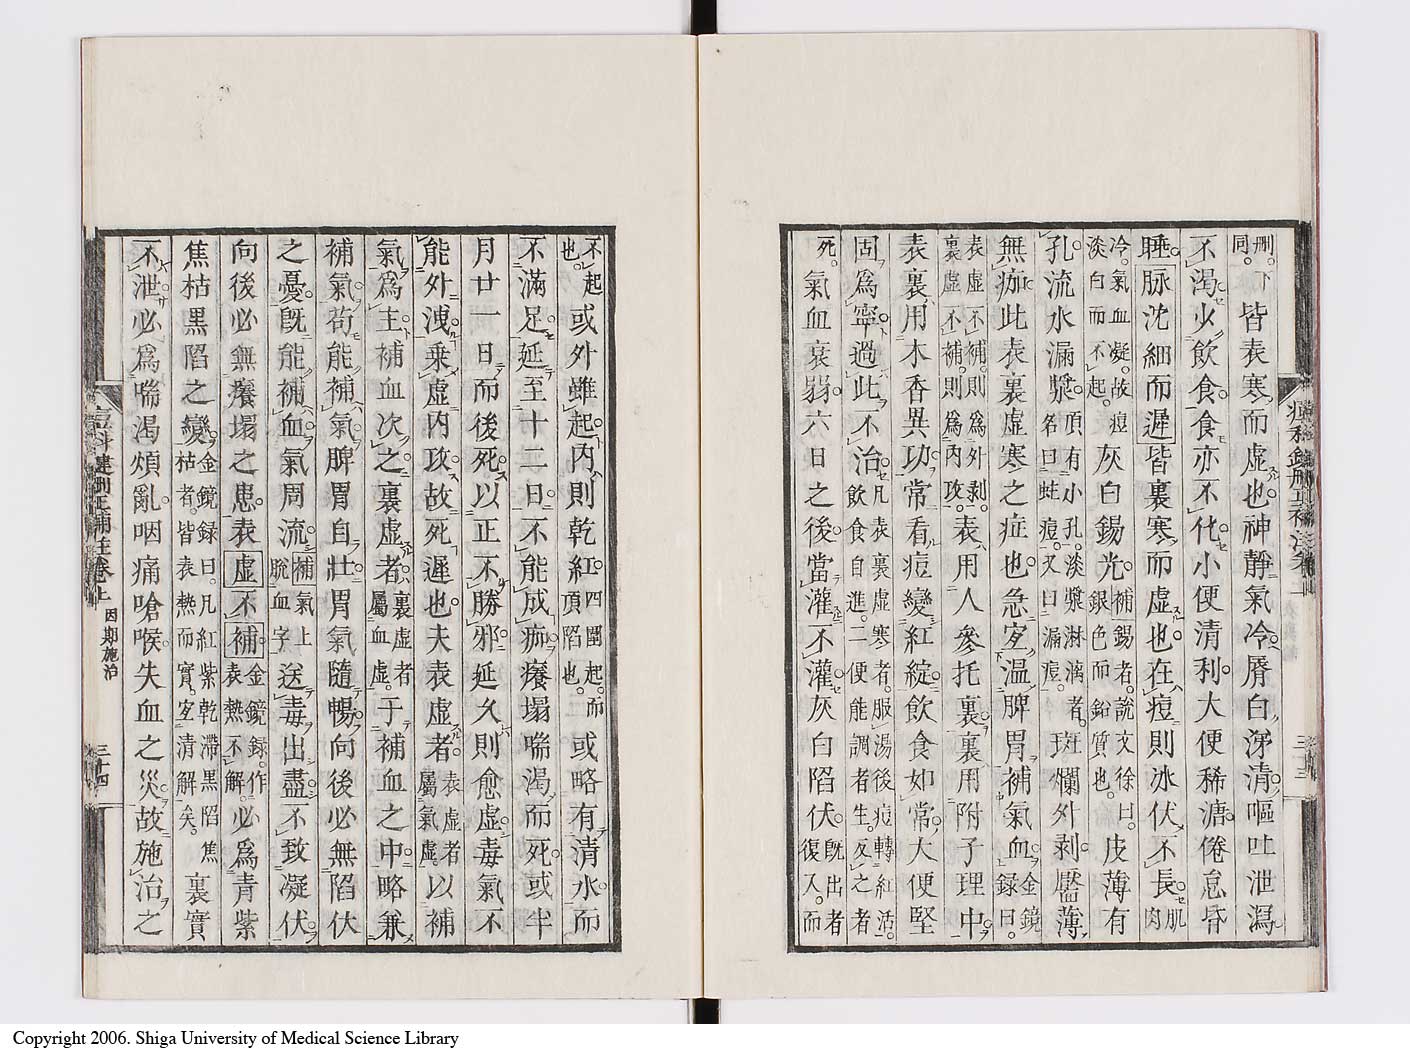 刪。下同。皆表寒而虛也神靜氣冷脣白涕清嘔吐泄瀉
不渴少飲食食亦不化小便清利大便稀溏倦怠昏
睡脉沈細而遲皆裏寒而虛也在痘則冰伏不長肌肉
冷。氣血凝。故痘淡白而不起。灰白錫光。補錫者。說文徐曰。銀色而鉛質也。皮薄有
孔。流水漏漿。頂有小孔。淡漿淋漓者。名曰蛀痘。又曰漏痘。斑爛外剥靨薄
無痂此表裏虛寒之症也急宐溫脾胃補氣血金鏡錄曰。
表虛不補。則爲外剥。裏虛不補。則爲內攻。表用人參托裏裏用附子理中
表裏用木香異功常看痘變紅綻飲食如常大便堅
固爲寧過此不治凡表裏虛寒者。服湯後痘轉紅活。飲食自進。二便能調者生。反之者
死。氣血衰弱六日之後當灌不灌灰白陷伏旣出者復入。而
不起也。或外雖起內則乾紅四圍起。而頂陷也。或略有清水而
不滿足延至十二日不能成痂癢塌喘渴而死或半
月廿一日而後死以正不勝邪延久則愈虛毒氣不
能外洩乗虛內攻故死遲也夫表虛者表虛者屬氣虛。以補
氣爲主補血次之裏虛者裏虛者屬血虛。于補血之中略兼
補氣苟能補氣脾胃自壯胃氣隨暢向後必無陷伏
之憂旣能補血氣周流補氣上脫血字送毒出盡不致凝伏
向後必無癢塌之患表虛不補金鏡錄。作表熱不解。必爲青紫
焦枯黑陷之變金鏡録曰。凡紅紫乾滯黑陷焦枯者。皆表熱而實。宐清解矣。裏實
不泄必爲喘渴煩亂咽痛嗆喉失血之災故施治之
因期施治
三十四
三十三
Copyright 2006. Shiga University of Medical Science Library